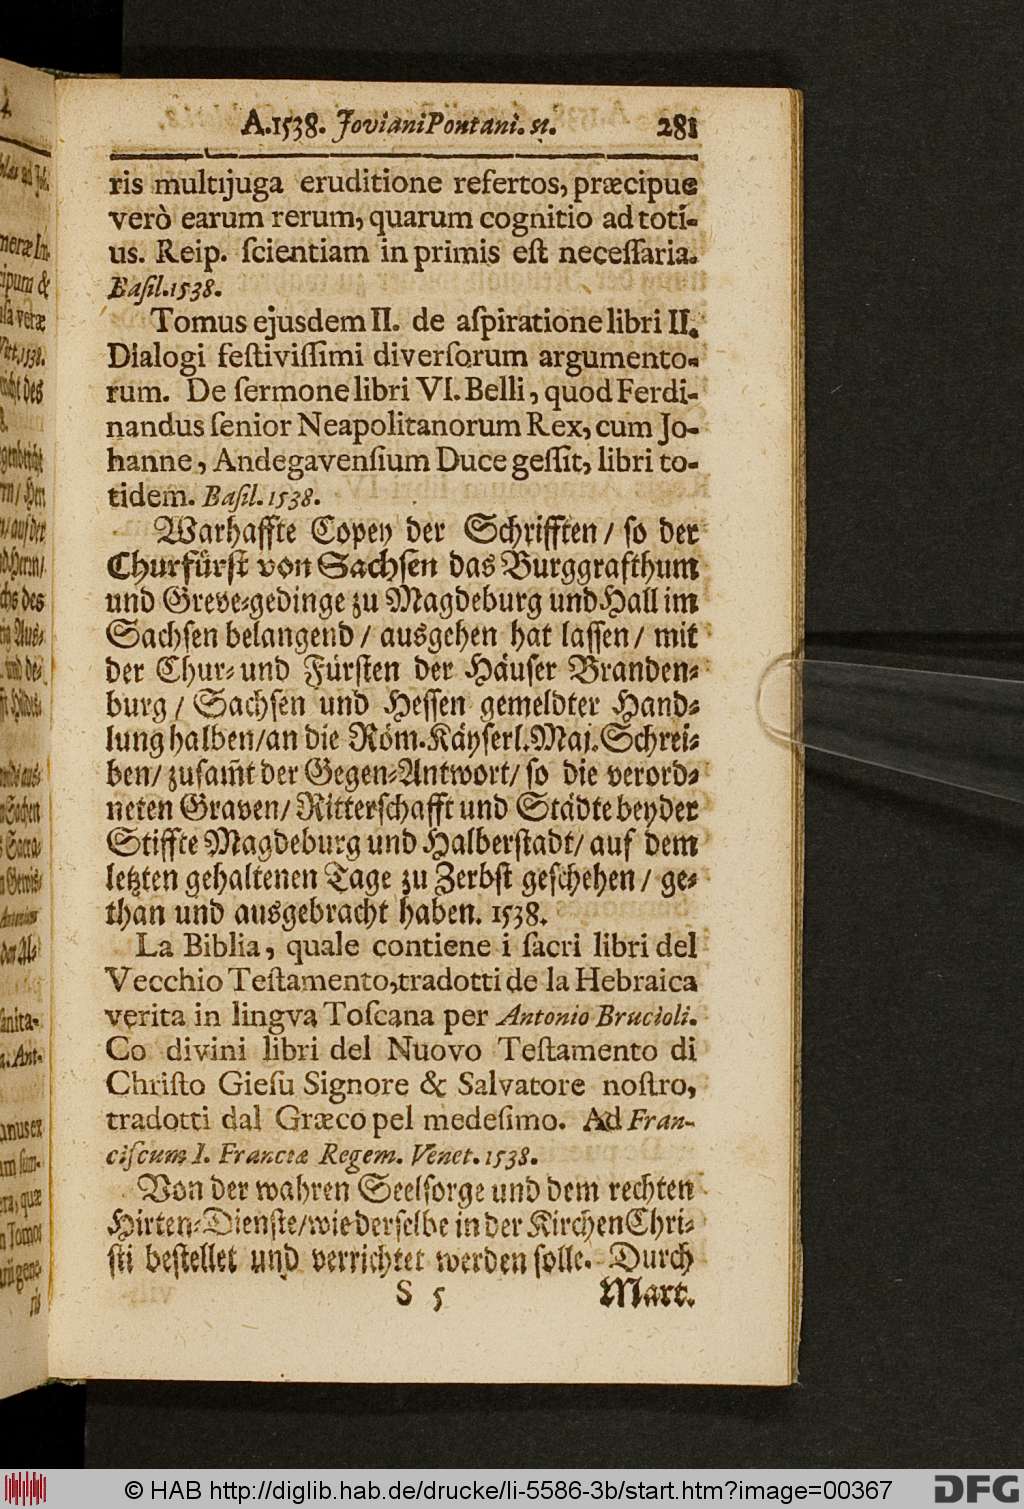 A. 1538. Joviani Pontani. n. 281
ris multijuga eruditione refertos, præcipue
verò earum rerum, quarum cognitio ad toti-
us. Reip. ſcientiam in primis eſt neceſſaria.
Baſil. 1538.
Tomus ejusdem II. de aſpiratione libri II.
Dialogi feſtiviſſimi diverſorum argumento-
rum. De ſermone libri VI. Belli, quod Ferdi-
nandus ſenior Neapolitanorum Rex, cum Jo-
hanne, Andegavenſium Duce geſſit, libri to-
tidem. Baſil. 1538.
Warhaffte Copey der Schrifften / ſo der
Churfürſt von Sachſen das Burggrafthum
und Greve-gedinge zu Magdeburg und Hall im
Sachſen belangend / ausgehen hat laſſen / mit
der Chur- und Fürſten der Häuſer Branden-
burg / Sachſen und Heſſen gemeldter Hand-
lung halben / an die Röm. Käyſerl. Maj. Schrei-
ben / zuſam̃t der Gegen-Antwort / ſo die verord-
neten Graven / Ritterſchafft und Städte beyder
Stiffte Magdeburg und Halberſtadt / auf dem
letzten gehaltenen Tage zu Zerbſt geſchehen / ge-
than und ausgebracht haben. 1538.
La Biblia, quale contiene i ſacri libri del
Vecchio Teſtamento, tradotti de la Hebraica
verita in lingva Toſcana per Antonio Brucioli.
Co divini libri del Nuovo Teſtamento di
Chriſto Gieſu Signore & Salvatore noſtro,
tradotti dal Græco pel medeſimo. Ad Fran-
ciſcum I. Franciæ Regem. Venet. 1538.
Von der wahren Seelſorge und dem rechten
Hirten-Dienſte / wie derſelbe in der Kirchen Chri-
ſti beſtellet und verrichtet werden ſolle. Durch
S 5 Mart.
© HAB http://diglib.hab.de/drucke/li-5586-3b/start.htm?image=00367
DFG